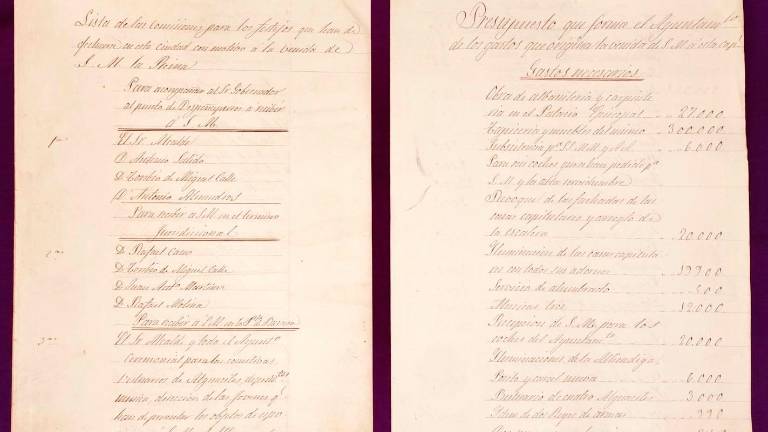 Lista de las Comisiones para los festejos que han de
efectuarse en esta ciudad con motivo a la venida de
S. M. la Reina
Para acompañar al Sr. Gobernador
al punto de Despeñaperros a recibir
á S. M.
1ª
El Sr. Alcalde
D. Antonio
D. Toribio de Miguel Calle
D. Antonio Almendros
Para recibir a S M en el termino
Jurisdicional
2ª
D. Rafael Cano
D. Toribio de Miguel Calle
D. Juan Antº Martinez
D. Rafael Molina
Para recibir á S M en la Pta
3ª
El Sr Alcalde y todo el Ayuntº
Ceremonial para las comitivas
Vestuarios de Alguaciles
de las jovenes q
han de presentar los objetos de
Presupuesto que forma el Ayuntamto
de los gastos que origina la venida de S. M. a esta Capl
Gastos necesarios
Obra de albañileria y carpinte
ria en el Palacio Episcopal 27.000
Tapiceria y muebles del mismo 300.000
Subsistencia pª SS. MM. y AA. 6.000
coches que se han pedido pª
S. M. y la alta servidumbre
Revoque de las fachadas de las
casas capitulares y arreglo de
la escalera 20.000
Iluminacion de las casas capitula
res con todos sus adornos
Servicio de alumbrado 500
Musicas, tres 12.000
Recepcion de S. M. para los
coches del Ayuntamto 20.000
Iluminaciones, de la Alhondiga
Posito y carcel nueva 6.000
Vestuario de cuatro Alguaciles 3.000
Idem de dos Reyes de armas 320